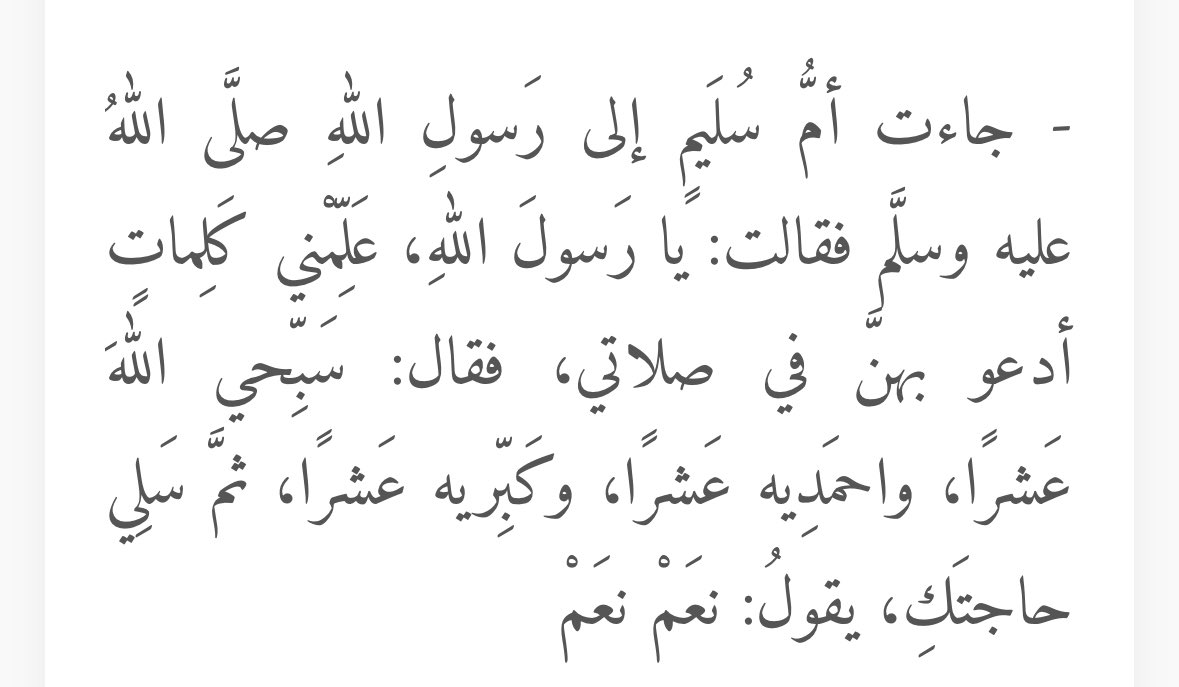 - جاءت أمُّ سُلَيمٍ إلى رَسولِ اللهِ صلَّى اللهُ
عليه وسلَّم فقالت: يا رَسولَ اللهِ، عَلِّمْني كَلِماتٍ
أدعو بهنَّ في صلاتي، فقال: سَبِّحي اللهَ
عَشرًا، واحمَدِيه عَشرًا، وكَبِّريه عَشرًا، ثمَّ سَلِي
حاجتَكِ، يقولُ: نعَمْ نعَمْ